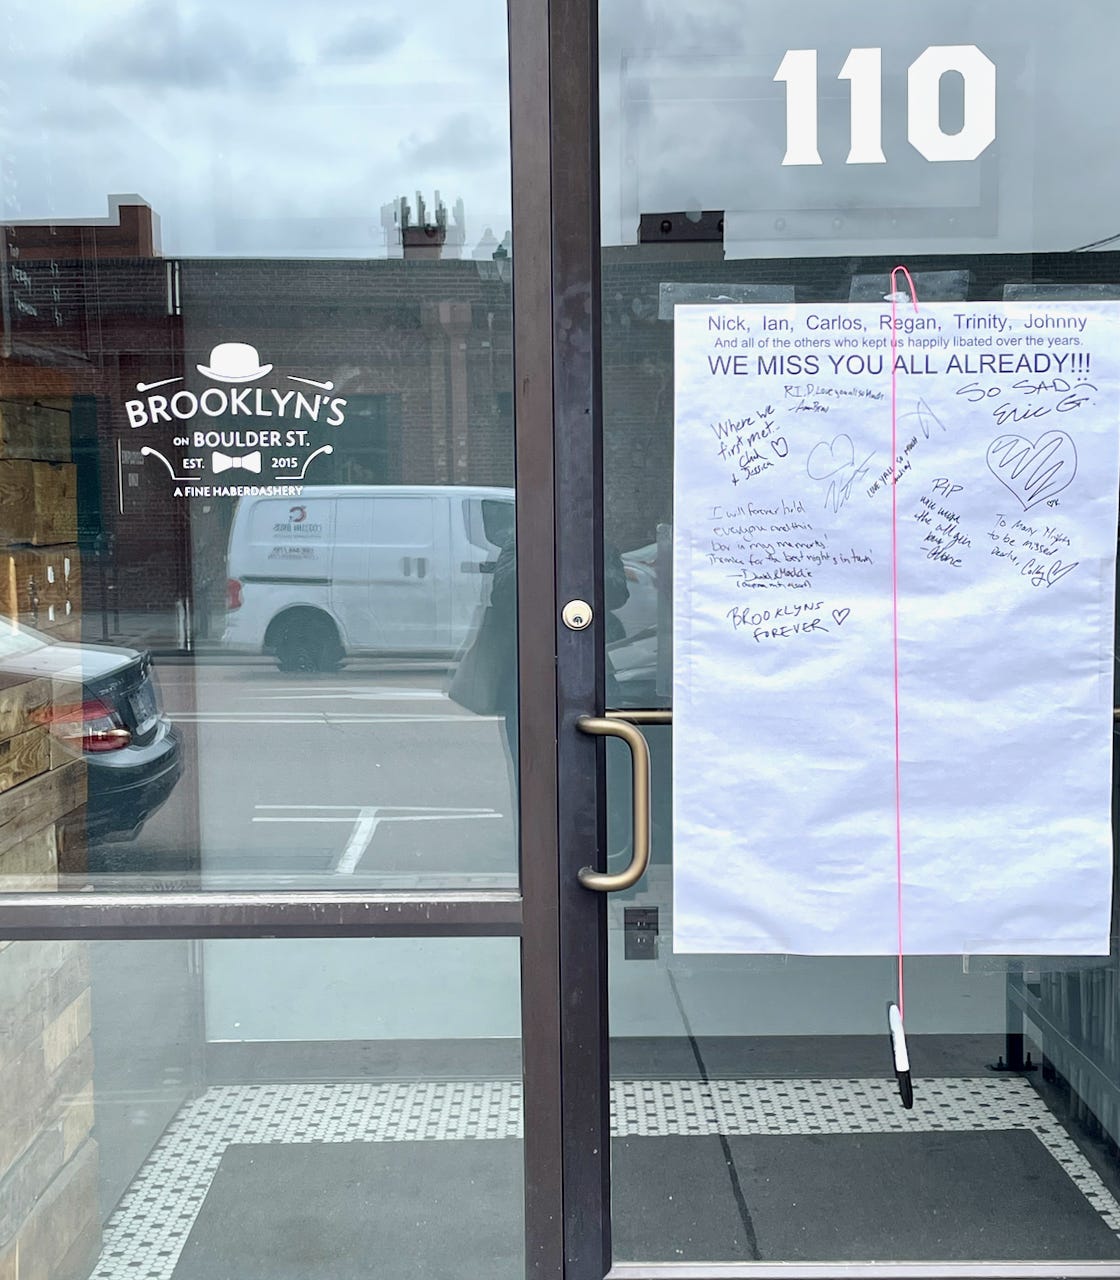 110
BROOKLYN'S
ON BOULDER ST.
EST. 2015
A FINE HABERDASHERY
Nick, Ian, Carlos, Regan, Trinity, Johnny
And all of the others who kept us happily libated over the years.
WE MISS YOU ALL ALREADY!!!
R.I.P Love you all so much
SO SAD
Eric G.
Where we
first met..
& Jessica
LOVE Y'ALL SO MUCH
RIP
I will forever hold
everyone and this
bar in my memory!
Thanks for the best nights in town!
To Many Nights
to be missed
Dearly, Colby
BROOKLYNS
FOREVER